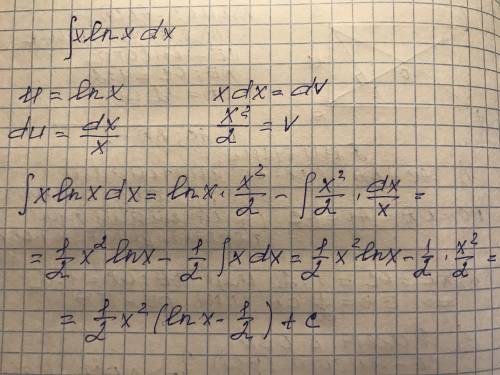 ∫x ln x dx
u = ln x    x dx = dv
du = dx/x    x²/2 = v
∫x ln x dx = ln x · x²/2 − ∫x²/2 · dx/x =
= 1/2 x² ln x − 1/2 ∫x dx = 1/2 x² ln x − 1/2 · x²/2 =
= 1/2 x² (ln x − 1/2) + c